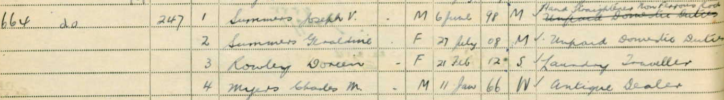 664 do 247 1 Summers Joseph V. - M 6 June 98 M Unpaid Domestic Duties
2 Summers Geraldine - F 27 July 08 M Unpaid Domestic Duties
3 Rowley Doreen - F 21 Feb 12 S Laundry Traveller
4 Myers Charles M. - M 11 Jan 66 W Antique Dealer